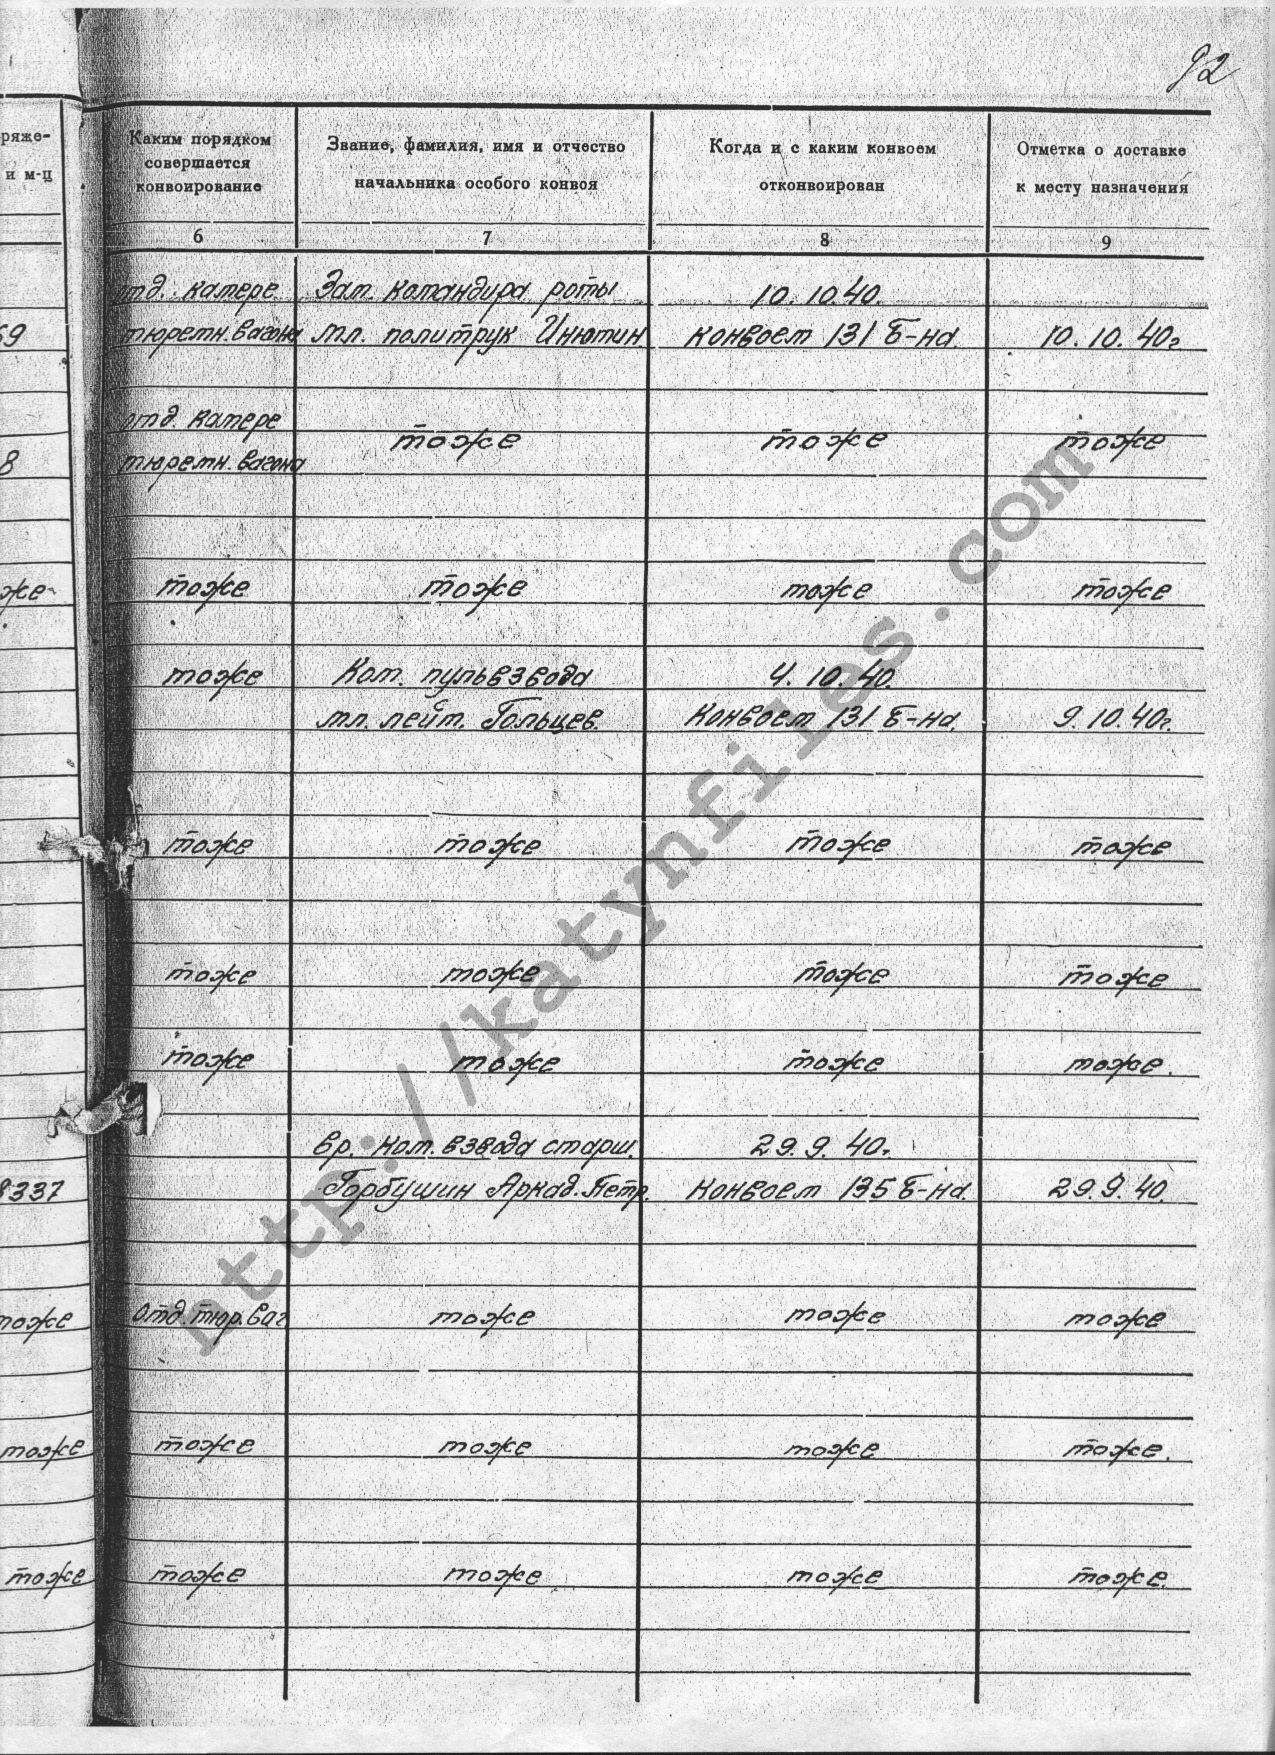 92
ряже-
и м-ц
Каким порядком
совершается
конвоирование
Звание, фамилия, имя и отчество
начальника особого конвоя
Когда и с каким конвоем
отконвоирован
Отметка о доставке
к месту назначения
6 7 8 9
отд. камере Зам. командира роты 10.10.40.
69 тюремн. вагона мл. политрук Инютин конвоем 131 б-на. 10.10.40г
отд. камере
тоже тоже тоже
8 тюремн. вагона
же тоже тоже тоже тоже
тоже Ком. пульвзвода 4.10.40.
мл. лейт. Гольцев. Конвоем 131 б-на. 9.10.40г.
тоже тоже тоже тоже
тоже тоже тоже тоже
тоже тоже тоже тоже.
вр. ком. взвода старш. 29.9.40.
8337 Горбушин Аркад. Петр. Конвоем 135 б-на. 29.9.40.
тоже отд. тюр. ваг тоже тоже тоже
тоже тоже тоже тоже тоже.
тоже тоже тоже тоже тоже.
http://katynfiles.com